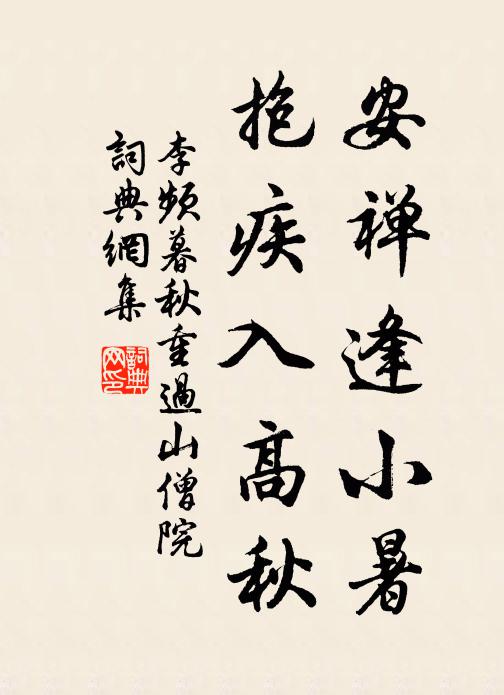 安禅逢小暑
抱疾入高秋
李频暮秋重過山僧院
詞典網集
詞典网印